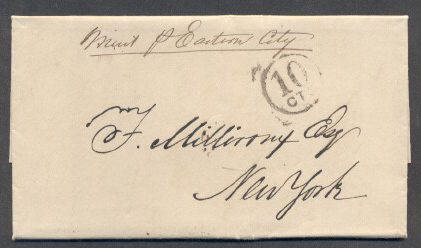 p Eastern City
10
CTS
F. Millirony Esq
New York